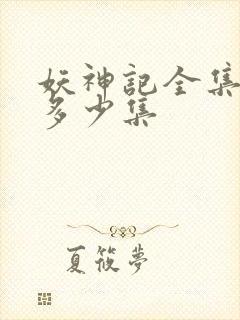 妖神記全集
多少集
夏筱夢